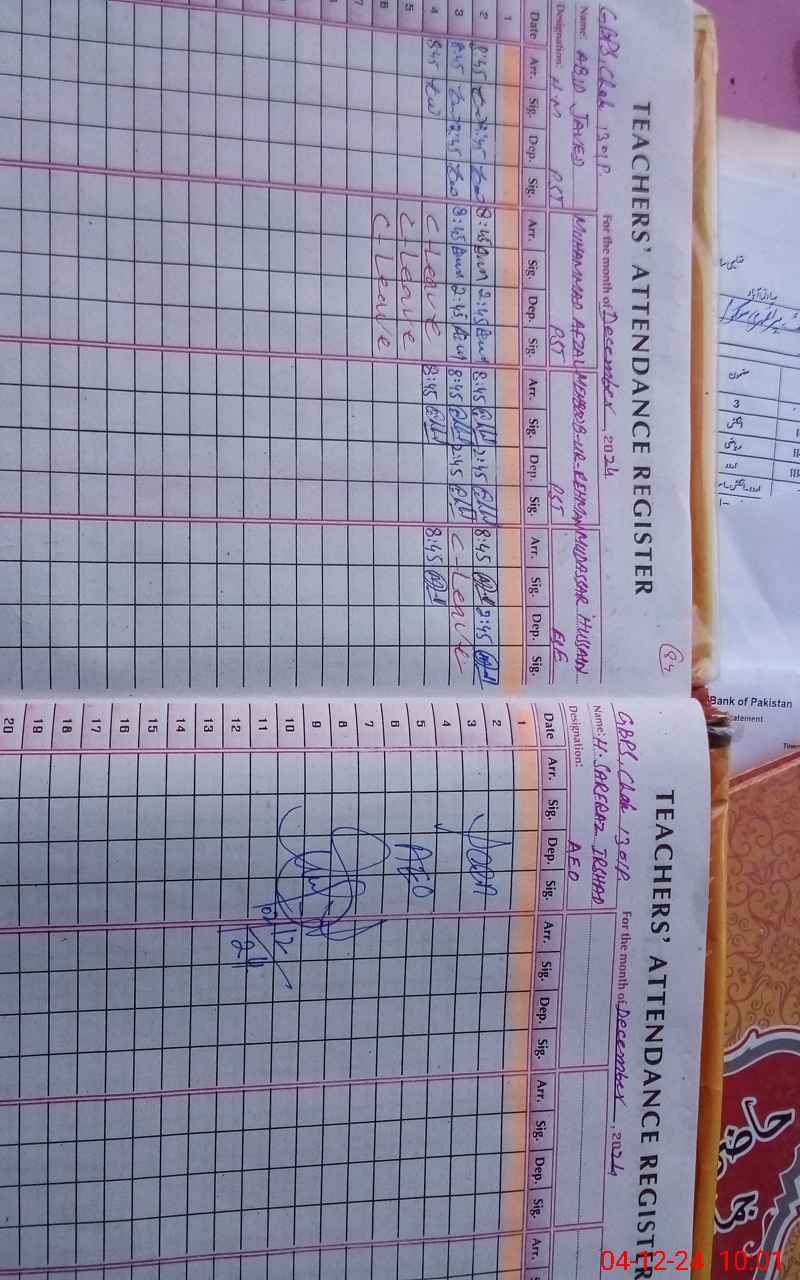 TEACHERS' ATTENDANCE REGISTER
GBPS, Chak 130/P. For the month of December, 2024
Name: ABID JAVED MUHAMMAD AFZAL MEHBOOB-UR-REHMAN MUDASSAR HUSSAIN
Designation: H.M PST PST PST ESE
Date Arr. Sig. Dep. Sig. Arr. Sig. Dep. Sig. Arr. Sig. Dep. Sig. Arr. Sig. Dep. Sig.
1
2 8:45 2:45 8:45 2:45 8:45 2:45 8:45 2:45
3 8:45 2:45 8:45 2:45 8:45 2:45 C-Leave
4 8:45 C-Leave 8:45 8:45
5 C-Leave
6 C-Leave
7
84
TEACHERS' ATTENDANCE REGISTER
GBPS, Chak 130/P For the month of December, 2024
Name: H. SARFRAZ IRSHAD
Designation: AEO
Date Arr. Sig. Dep. Sig. Arr. Sig. Dep. Sig. Arr. Sig. Dep. Sig. Arr.
1
2
3
4
5 AEO
6
7
8
9
10
11
12
13
14
15
16
17
18
19
20
Bank of Pakistan
04-12-24 10:01